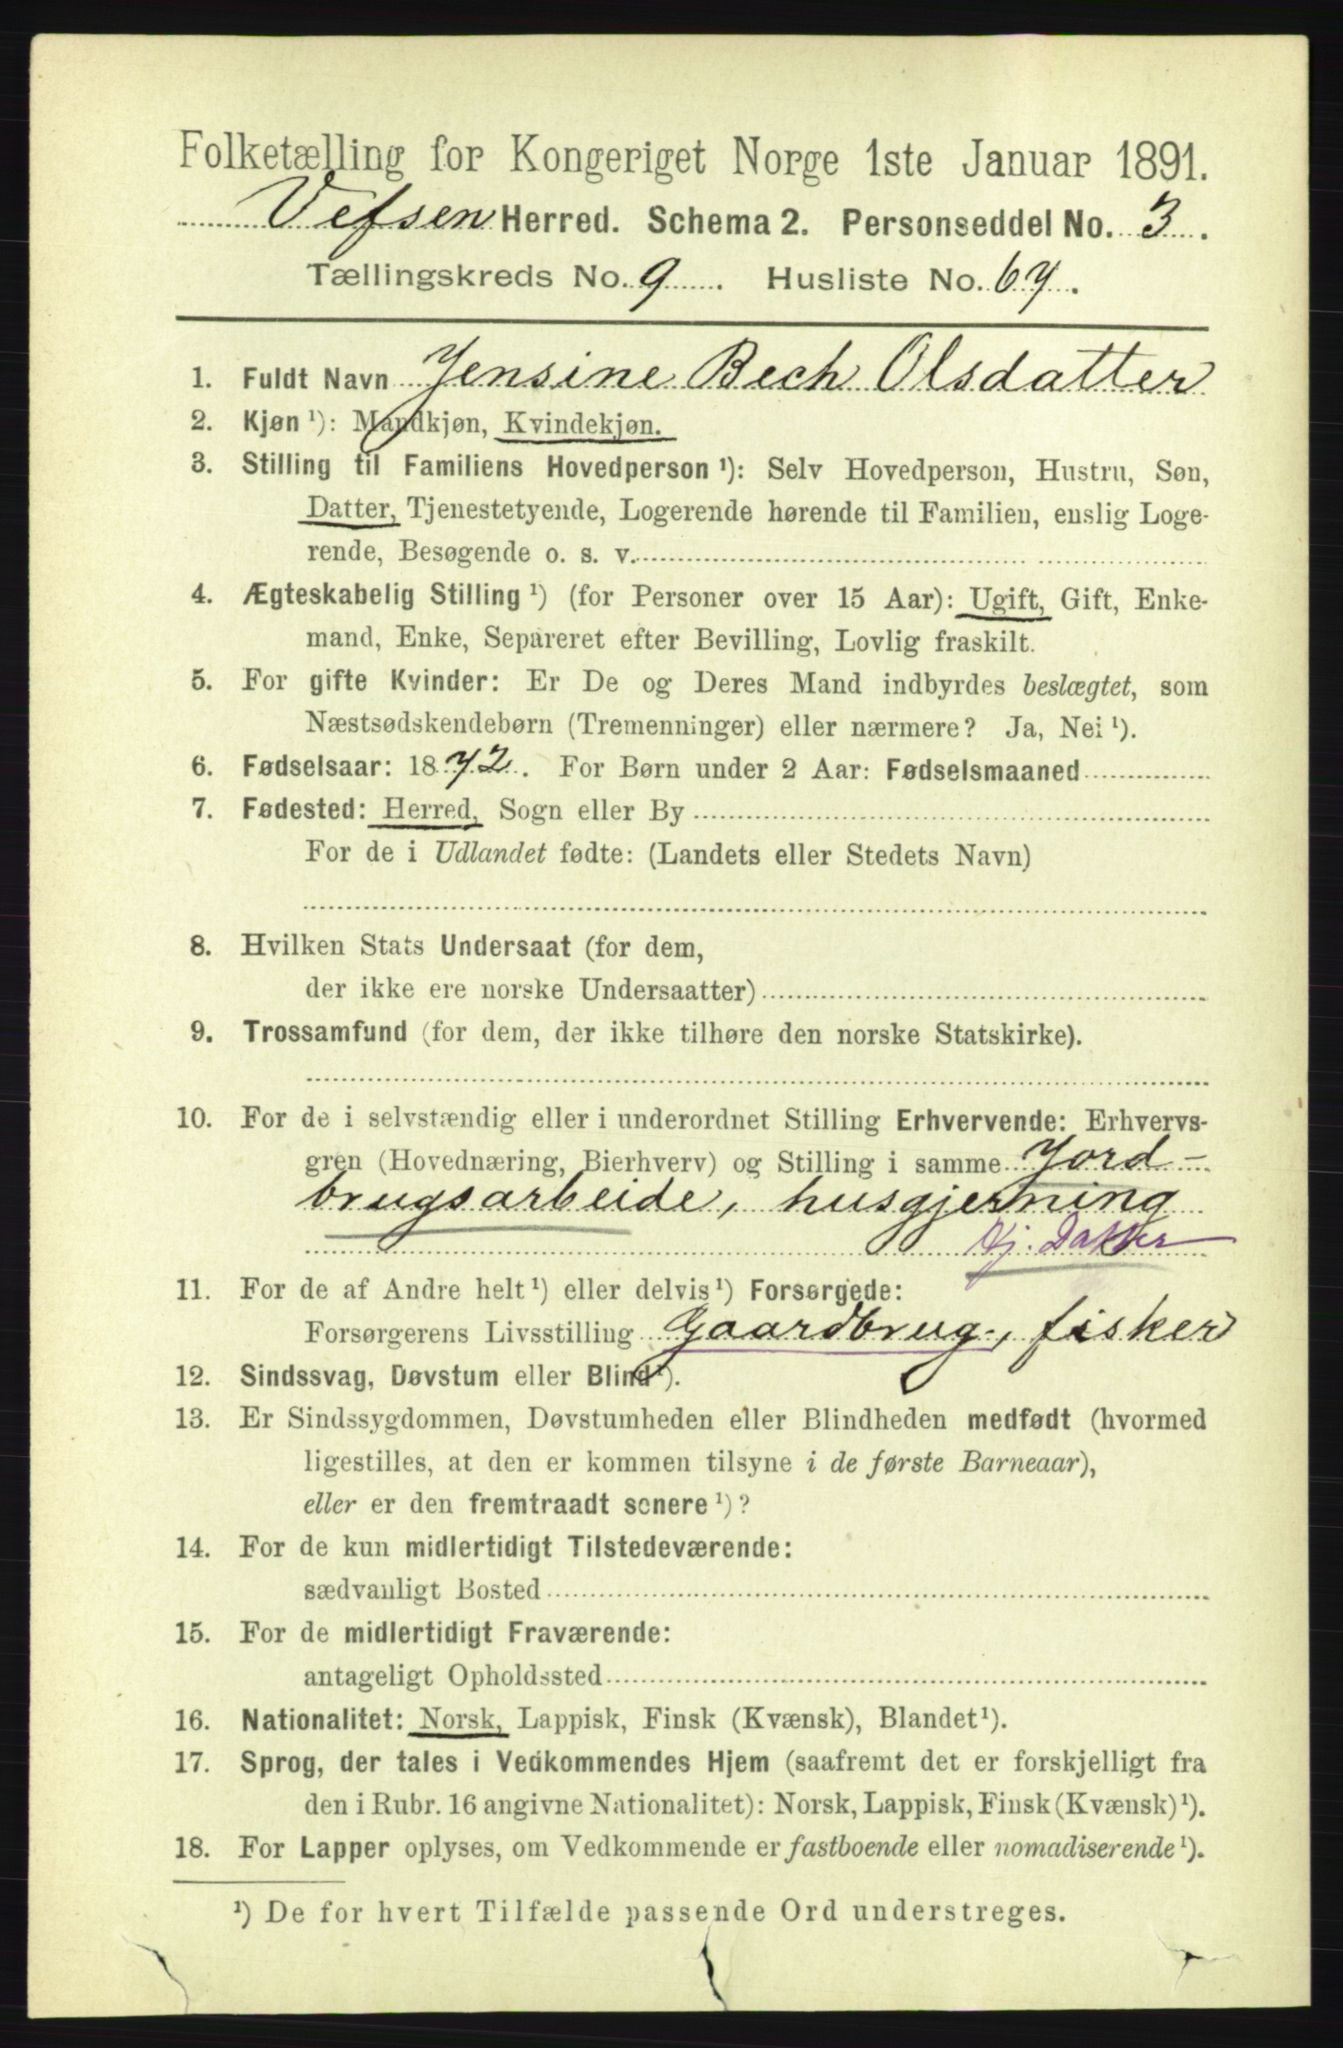 Folketælling for Kongeriget Norge 1ste Januar 1891.
Vefsen Herred. Schema 2. Personseddel No. 3.
Tællingskreds No. 9. Husliste No. 67.
1. Fuldt Navn Jensine Bech Olsdatter
2. Kjøn ¹): Mandkjøn, Kvindekjøn.
3. Stilling til Familiens Hovedperson ¹): Selv Hovedperson, Hustru, Søn,
Datter, Tjenestetyende, Logerende hørende til Familien, enslig Loge-
rende, Besøgende o. s. v.
4. Ægteskabelig Stilling ¹) (for Personer over 15 Aar): Ugift, Gift, Enke-
mand, Enke, Separeret efter Bevilling, Lovlig fraskilt.
5. For gifte Kvinder: Er De og Deres Mand indbyrdes beslægtet, som
Næstsødskendebørn (Tremenninger) eller nærmere? Ja, Nei ¹).
6. Fødselsaar: 1872. For Børn under 2 Aar: Fødselsmaaned
7. Fødested: Herred, Sogn eller By
For de i Udlandet fødte: (Landets eller Stedets Navn)
8. Hvilken Stats Undersaat (for dem,
der ikke ere norske Undersaatter)
9. Trossamfund (for dem, der ikke tilhøre den norske Statskirke).
10. For de i selvstændig eller i underordnet Stilling Erhvervende: Erhvervs-
gren (Hovednæring, Bierhverv) og Stilling i samme Jord-
brugsarbeide, husgjerning
Gj. Datter
11. For de af Andre helt ¹) eller delvis ¹) Forsørgede:
Forsørgerens Livsstilling Gaardbrug, fisker
12. Sindssvag, Døvstum eller Blind ¹).
13. Er Sindssygdommen, Døvstumheden eller Blindheden medfødt (hvormed
ligestilles, at den er kommen tilsyne i de første Barneaar),
eller er den fremtraadt senere ¹)?
14. For de kun midlertidigt Tilstedeværende:
sædvanligt Bosted
15. For de midlertidigt Fraværende:
antageligt Opholdssted
16. Nationalitet: Norsk, Lappisk, Finsk (Kvænsk), Blandet ¹).
17. Sprog, der tales i Vedkommendes Hjem (saafremt det er forskjelligt fra
den i Rubr. 16 angivne Nationalitet): Norsk, Lappisk, Finsk (Kvænsk) ¹).
18. For Lapper oplyses, om Vedkommende er fastboende eller nomadiserende ¹).
¹) De for hvert Tilfælde passende Ord understreges.